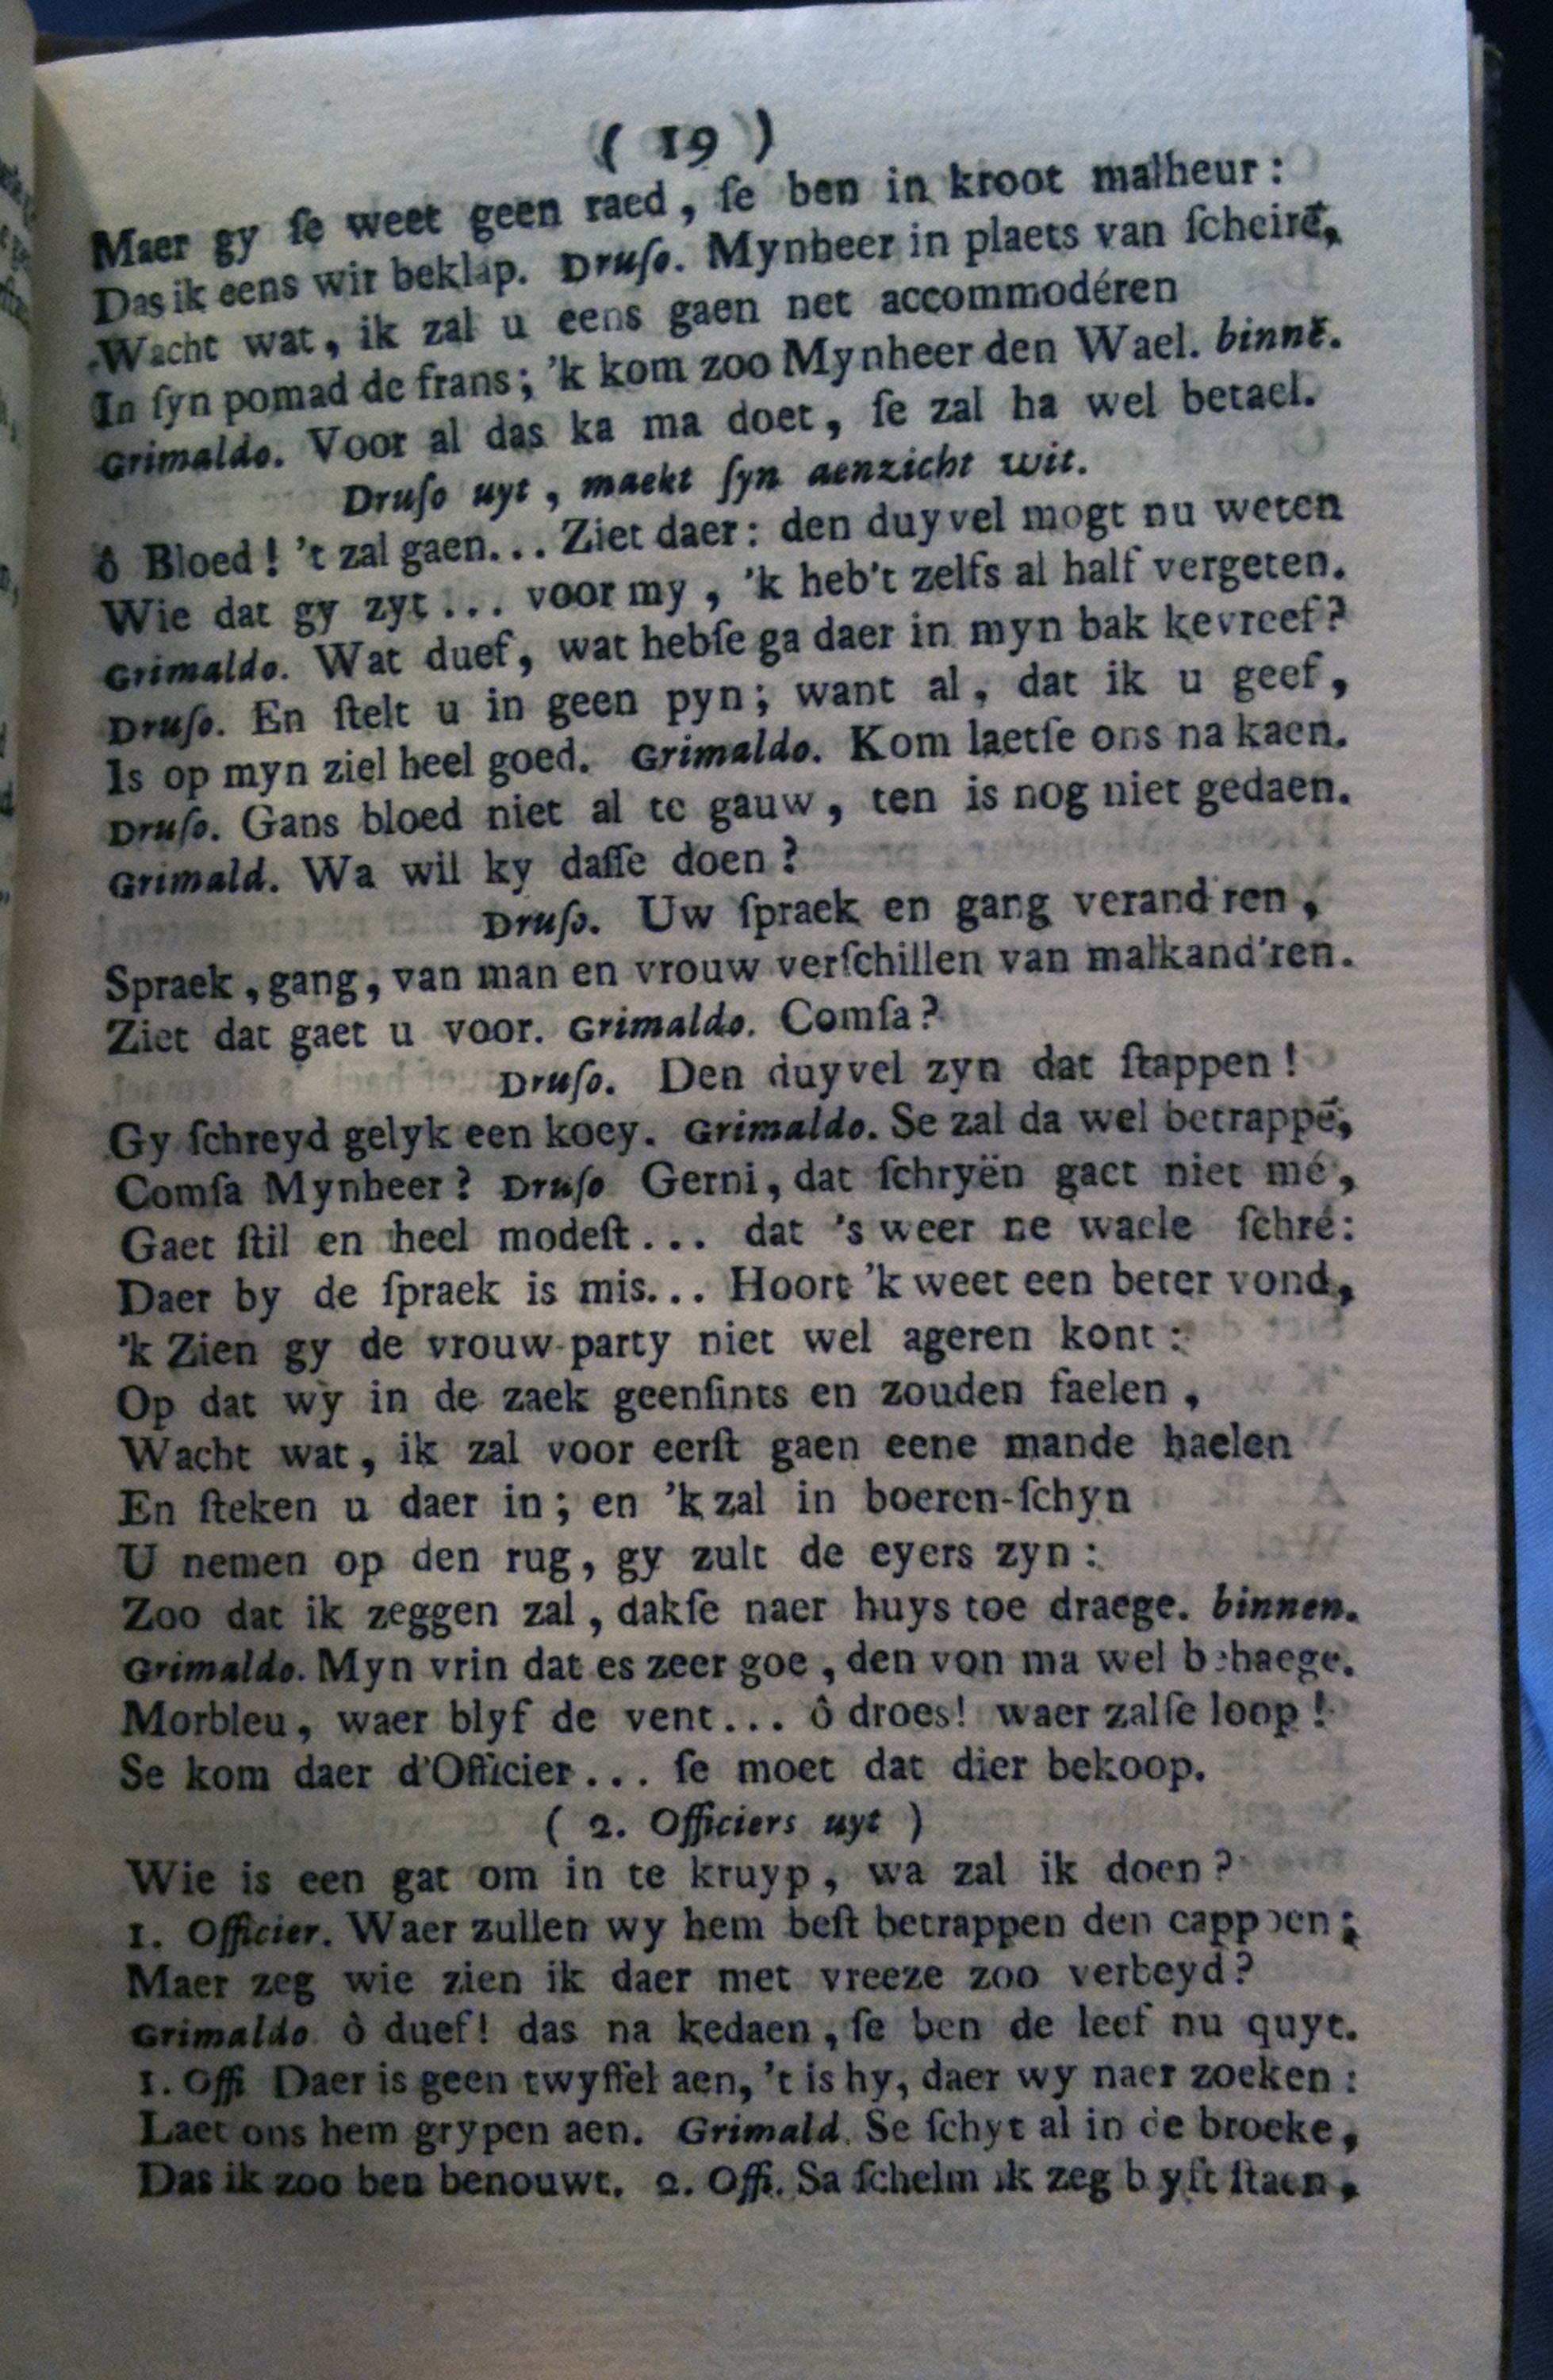 ( 19 )
Maer gy ſe weet geen raed, ſe ben in kroot malheur:
Das ik eens wir beklap. Druſo. Mynheer in plaets van ſcheirē,
Wacht wat, ik zal u eens gaen net accommodéren
In ſyn pomad de frans; 'k kom zoo Mynheer den Wael. binnē.
Grimaldo. Voor al das ka ma doet, ſe zal ha wel betael.
Druſo uyt, maekt ſyn aenzicht wit.
ô Bloed! 't zal gaen... Ziet daer: den duyvel mogt nu weten
Wie dat gy zyt... voor my, 'k heb't zelfs al half vergeten.
Grimaldo. Wat duef, wat hebſe ga daer in myn bak kevreef?
Druſo. En ſtelt u in geen pyn; want al, dat ik u geef,
Is op myn ziel heel goed. Grimaldo. Kom laetſe ons na kaen.
Druſo. Gans bloed niet al te gauw, ten is nog niet gedaen.
Grimald. Wa wil ky daſſe doen?
Druſo. Uw ſpraek en gang verand'ren,
Spraek, gang, van man en vrouw verſchillen van malkand'ren.
Ziet dat gaet u voor. Grimaldo. Comſa?
Druſo. Den duyvel zyn dat ſtappen!
Gy ſchreyd gelyk een koey. Grimaldo. Se zal da wel betrappē,
Comſa Mynheer? Druſo Gerni, dat ſchryën gaet niet mé,
Gaet ſtil en heel modeſt... dat 's weer ne waele ſchré:
Daer by de ſpraek is mis... Hoort 'k weet een beter vond,
'k Zien gy de vrouw-party niet wel ageren kont:
Op dat wy in de zaek geenſints en zouden faelen,
Wacht wat, ik zal voor eerſt gaen eene mande haelen
En ſteken u daer in; en 'k zal in boeren-ſchyn
U nemen op den rug, gy zult de eyers zyn:
Zoo dat ik zeggen zal, dakſe naer huys toe draege. binnen.
Grimaldo. Myn vrin dat es zeer goe, den von ma wel behaege.
Morbleu, waer blyf de vent... ô droes! waer zalſe loop!
Se kom daer d'Officier... ſe moet dat dier bekoop.
( 2. Officiers uyt )
Wie is een gat om in te kruyp, wa zal ik doen?
1. Officier. Waer zullen wy hem beſt betrappen den cappoen;
Maer zeg wie zien ik daer met vreeze zoo verbeyd?
Grimaldo ô duef! das na kedaen, ſe ben de leef nu quyt.
1. Offi Daer is geen twyffel aen, 't is hy, daer wy naer zoeken:
Laet ons hem grypen aen. Grimald. Se ſchyt al in de broeke,
Das ik zoo ben benouwt. 2. Offi. Sa ſchelm ik zeg blyft ſtaen,